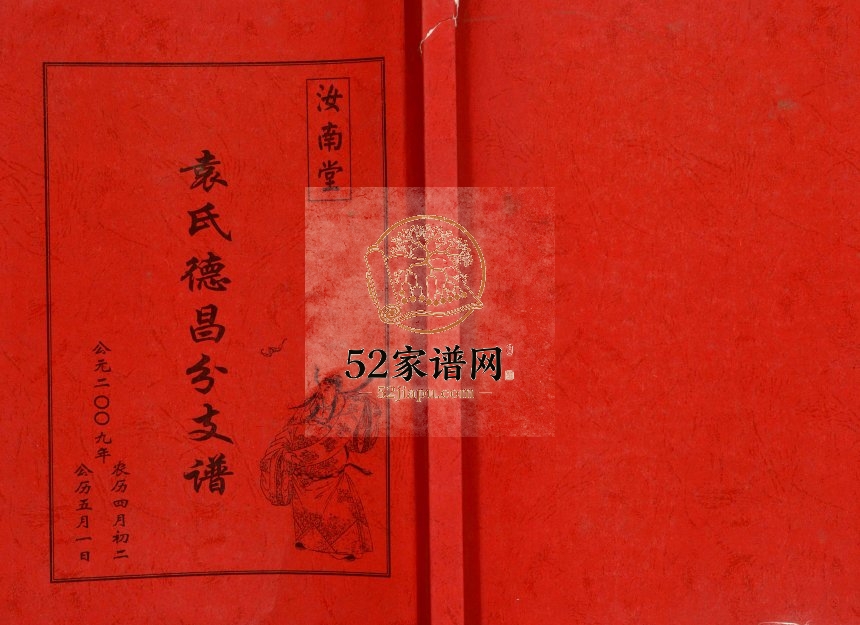 汝南堂
袁氏德昌分支谱
公元二〇〇九年
农历四月初二
公历五月一日
52家谱网
52jiapu.com